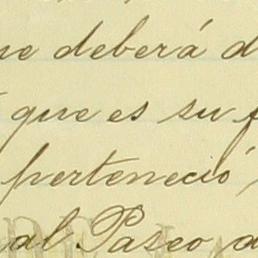 ue deberá d
que es su f
perteneció
al Paseo d